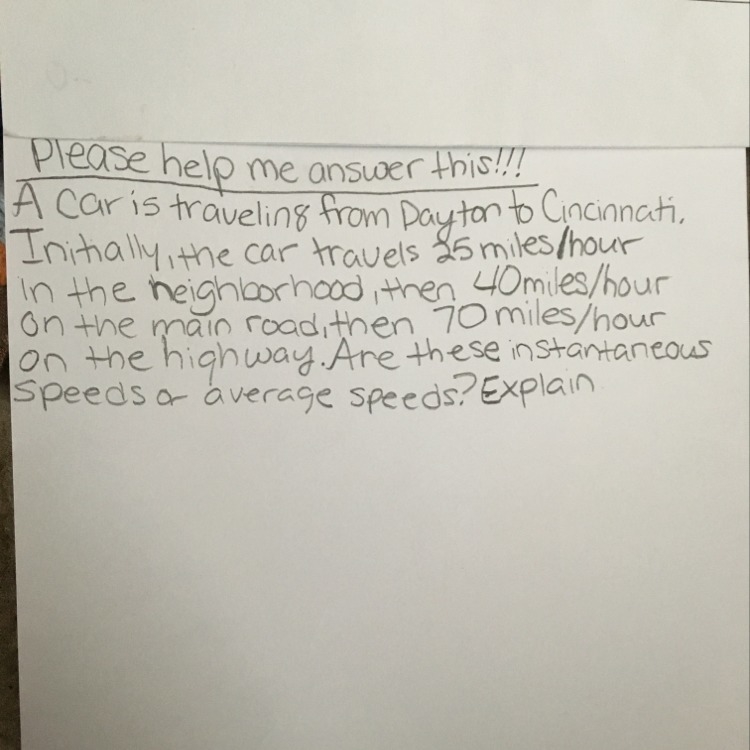 Please help me answer this!!!
A car is traveling from Dayton to Cincinnati.
Initially, the car travels 25 miles/hour
in the neighborhood, then 40 miles/hour
on the main road, then 70 miles/hour
on the highway. Are these instantaneous
speeds or average speeds? Explain